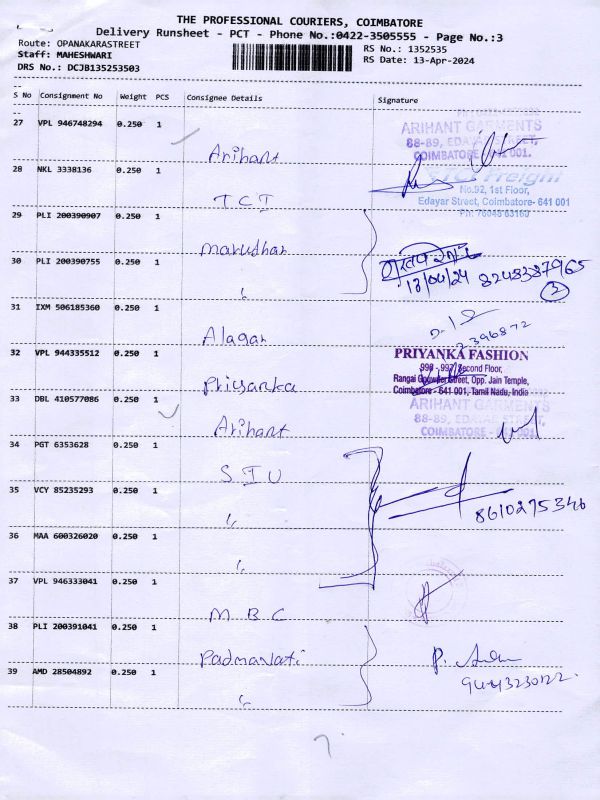 THE PROFESSIONAL COURIERS, COIMBATORE
Delivery Runsheet - PCT - Phone No.:0422-3505555 - Page No.:3
Route: OPANAKARASTREET
RS No.: 1352535
Staff: MAHESHWARI
RS Date: 13-Apr-2024
DRS No.: DCJB135253503
S No Consignment No Weight PCS Consignee Details Signature
27 VPL 946748294 0.250 1
Arihant
ARIHANT GARMENTS
88-89, EDAYAR STREET,
COIMBATORE - 641 001.
28 NKL 3338136 0.250 1
TCI
TCI Freight
No.92, 1st Floor,
Edayar Street, Coimbatore- 641 001
29 PLI 200390907 0.250 1
Marudhar
30 PLI 200390755 0.250 1
"
13/04/24 8248387965
2
31 IXM 506185360 0.250 1
Alagar
2396872
32 VPL 944335512 0.250 1
Priyanka
PRIYANKA FASHION
Second Floor,
Rangai Gowder Street, Opp. Jain Temple,
Coimbatore - 641 001, Tamil Nadu, India
33 DBL 410577086 0.250 1
Arihant
ARIHANT GARMENTS
88-89, EDAYAR STREET,
COIMBATORE - 641 001.
34 PGT 6353628 0.250 1
SIU
35 VCY 85235293 0.250 1
"
8610275346
36 MAA 600326020 0.250 1
"
37 VPL 946333041 0.250 1
MBC
38 PLI 200391041 0.250 1
Padmavati
39 AMD 28504892 0.250 1
"